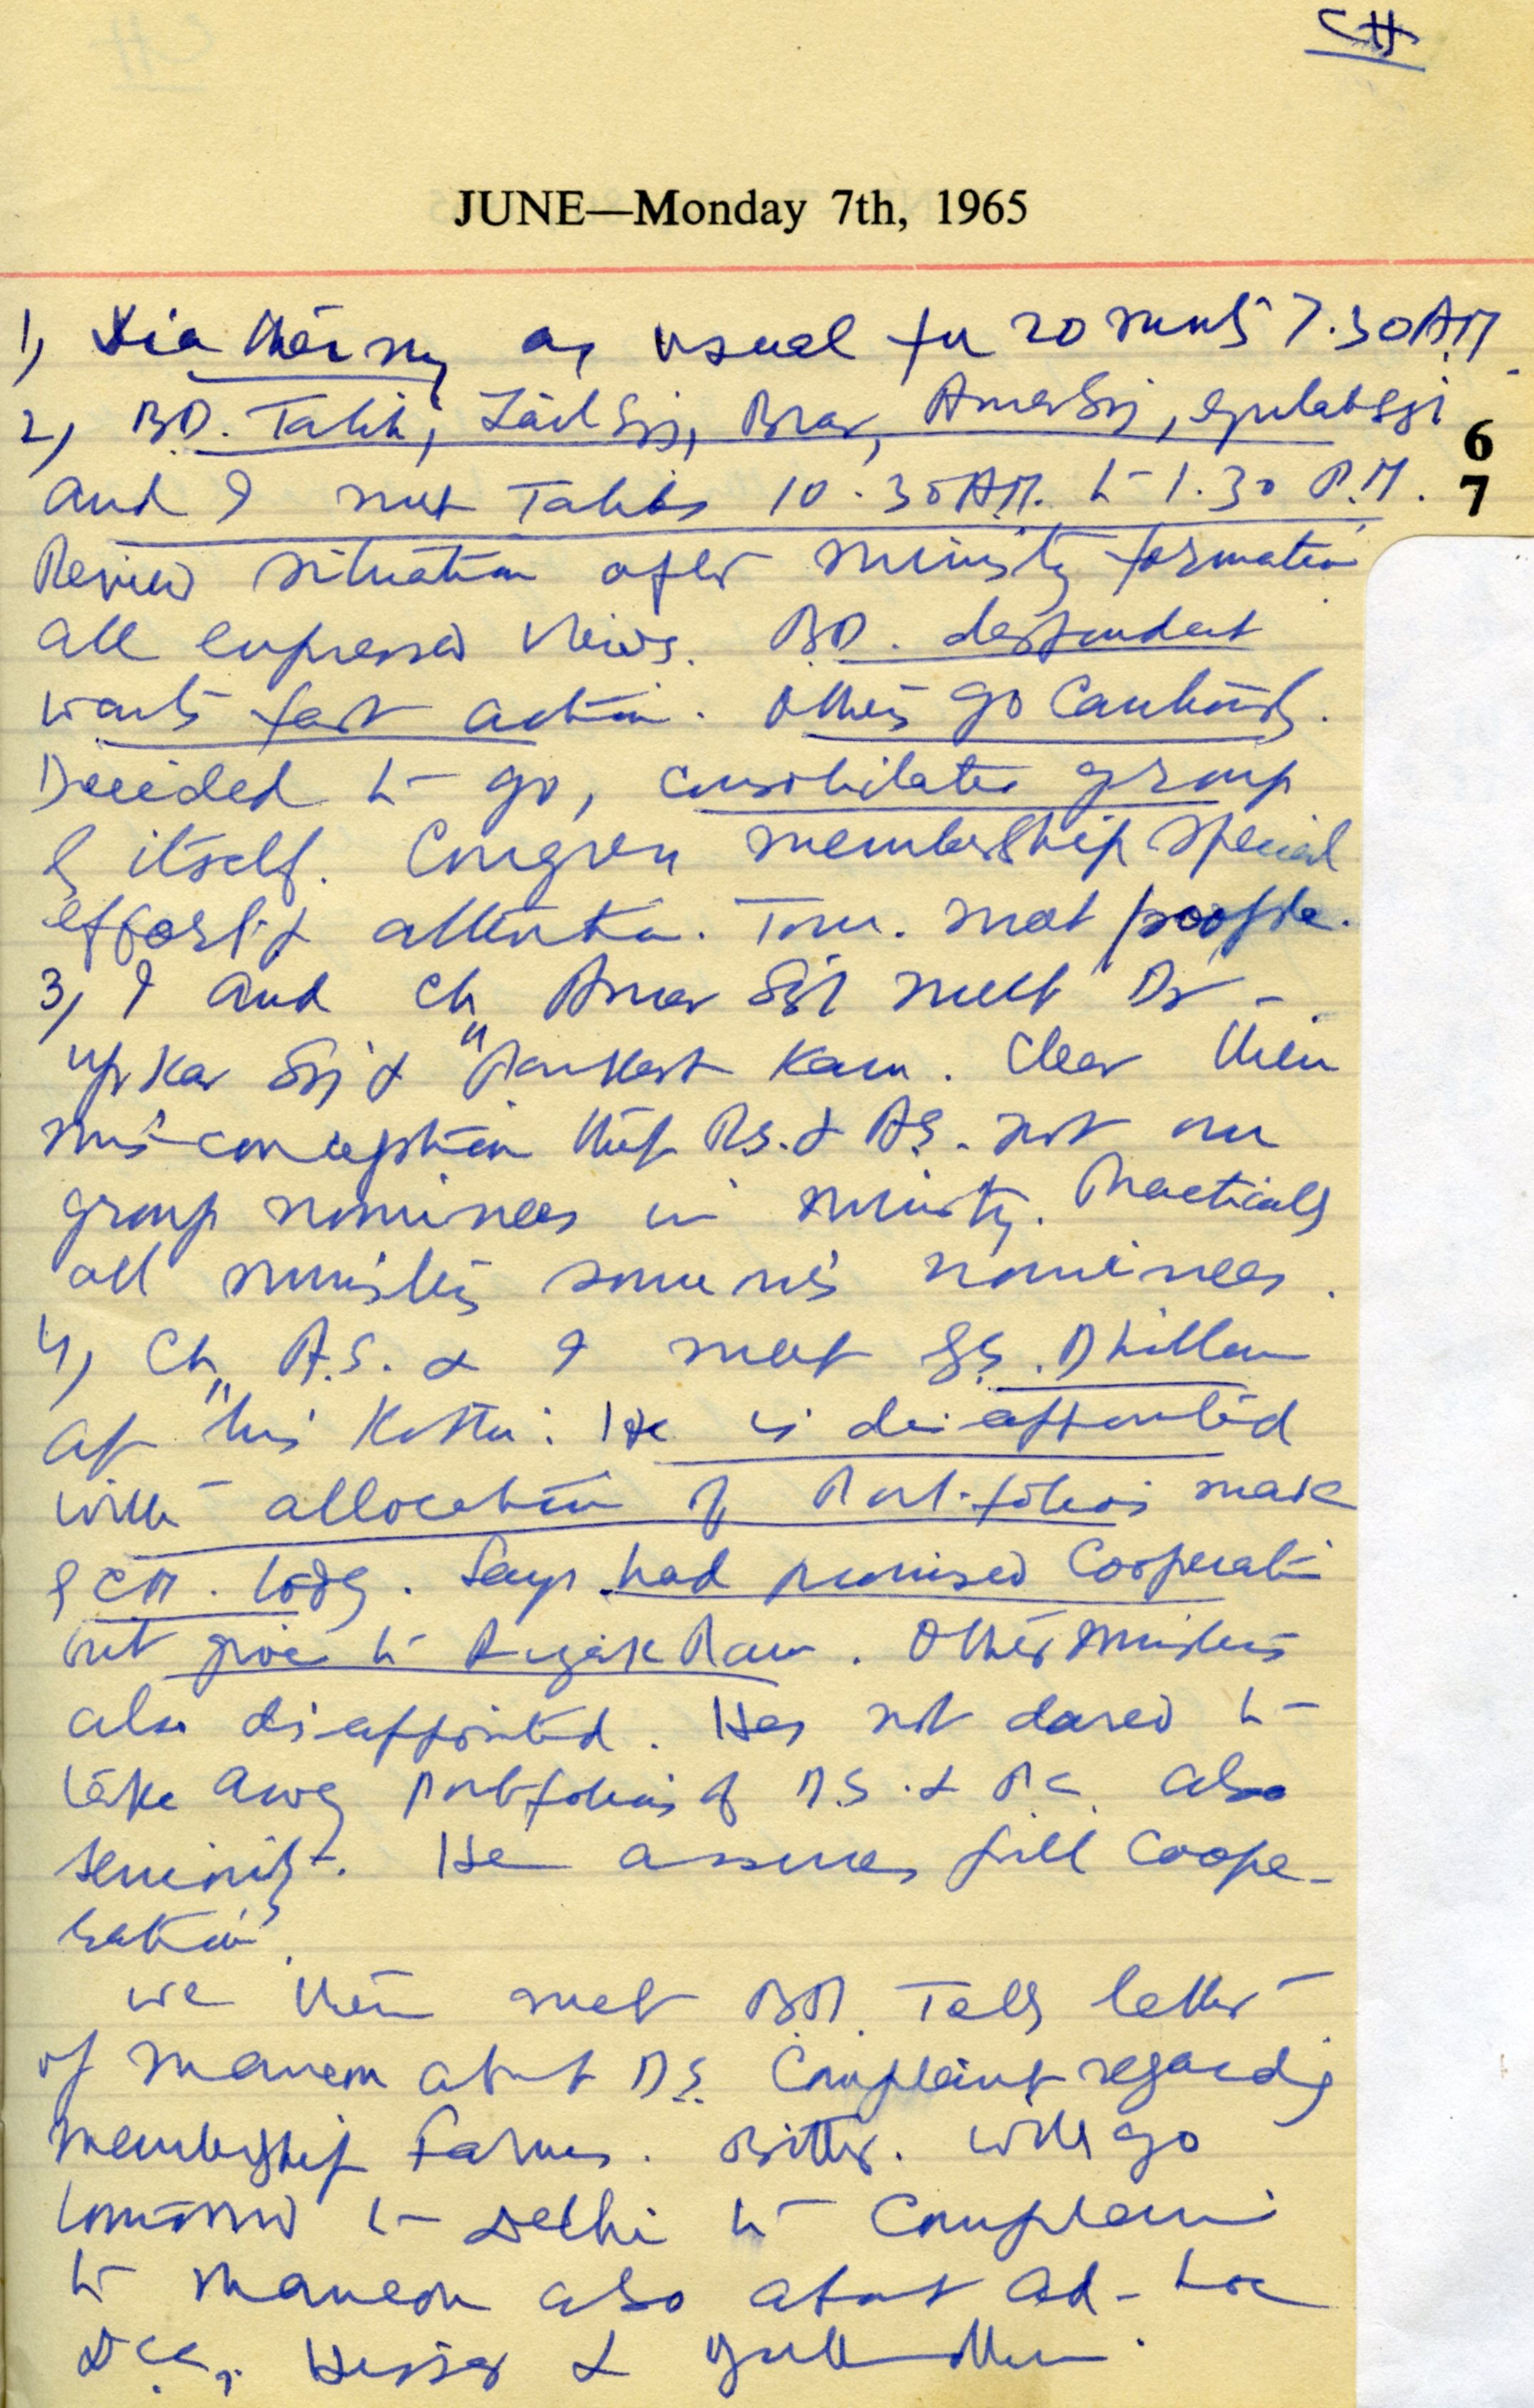 CH
JUNE—Monday 7th, 1965
1, as usual for 20 minuts 7.30 AM.
2, B.D. Talib, Lāil Sgṇ, Brar, Amar Sgṇ, Gulab Sgṇ
6
and I meet Talibs 10.30 AM. to 1.30 P.M.
7
Review situation after ministry formation
all expressed views. B.D. despondent
wants fast action. Others go cautiously.
Decided to go, consolidate group
& itself. Congress membership special
effort & attention. Tour. meet people.
3, I and Ch. Amar Sgṇ meet Dr.
Upkar Sgṇ & Ram. Clear their
mis-conception that R.S. & A.S. not our
group nominees in ministry. Practically
all ministers some one's nominees.
4, Ch. A.S. & I meet G.S. Dhillon
at his Kothi. He is disappointed
with allocation of Port-folios made
by C.M. today. Says had promised Cooperation
but given to Rizak Ram. Other Ministers
also disappointed. Has not dared to
take away Portfolios of D.S. & P.C. also
seniority. He assures full Coope-
ration.
We then met B.D. Tells letter
of Maneen about D.S. Complaint regarding
membership Forms. Bitter. Will go
tomorrow to Delhi to Complain
to Maneen also about ad-hoc
D.C.C., Hissar &